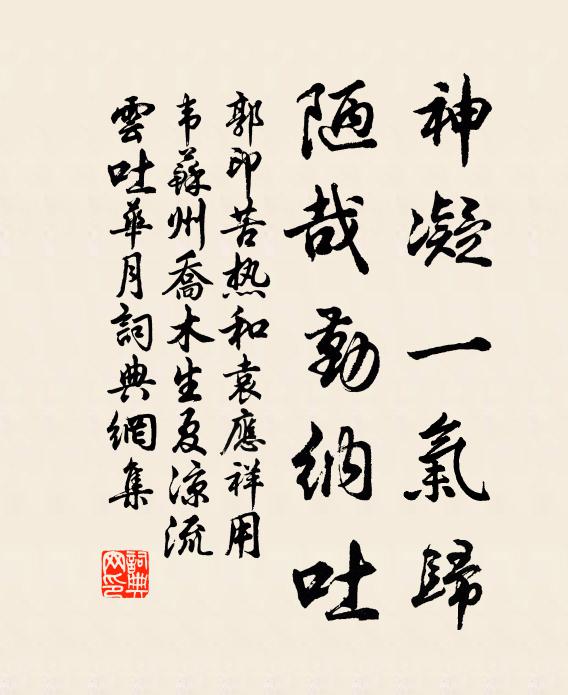 神凝一氣歸
陋哉勤納吐
郭印苦热和袁應祥用
韦蘇州喬木生夏凉流
雲吐華月詞典網集
詞典网印